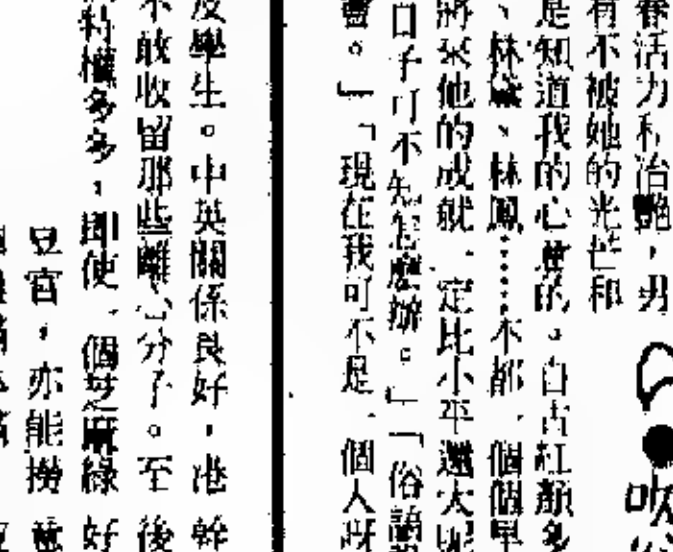 春活力和冶艷，男
有不被她的光芒和
是知道我的心意的。自古紅顏多
、林黛、林鳳……不都一個個早
將來他的成就一定比小平還大呢
日子可不知怎麼辦。」「俗語說
會。」「現在我可不是一個人呀
吹
反學生。中英關係良好，港幹
不敢收留那些離心分子。至後
特權多多，即使一個芝麻綠好
豆官，亦能撈